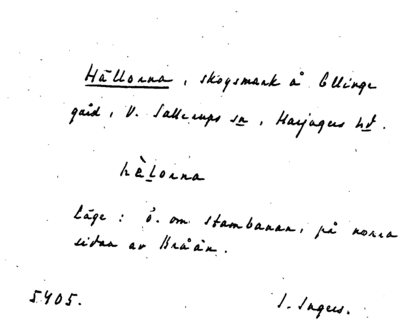 Hällorna, skogsmark å Ellinge
gård, V. Sallerups sn, Harjagers hd.
hèlorna
Läge: ö. om stambanan, på norra
sidan av Bråån.
5405. I. Ingers.